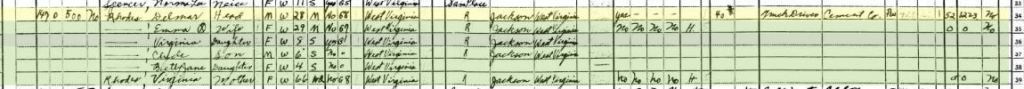 Spencer, Norma Lee Neice F W 11 S yes West Virginia Same Place 33
149 0 500 No Rhodes Delmar Head M W 28 M No 68 West Virginia R Jackson West Virginia yes 40 Truck Driver Cement Co. 1 52 1223 No 34
Emma Wife F W 29 M No 69 West Virginia R Jackson West Virginia No No No No H 0 0 No 35
Virginia Daughter F W 8 S yes West Virginia R Jackson West Virginia 36
Clyde Son M W 6 S No 0 West Virginia R Jackson West Virginia 37
Daughter F W 4 S No 0 West Virginia 38
Rhodes Virginia Mother F W 66 Wd No 68 West Virginia R Jackson West Virginia No No No No H 0 0 No 39